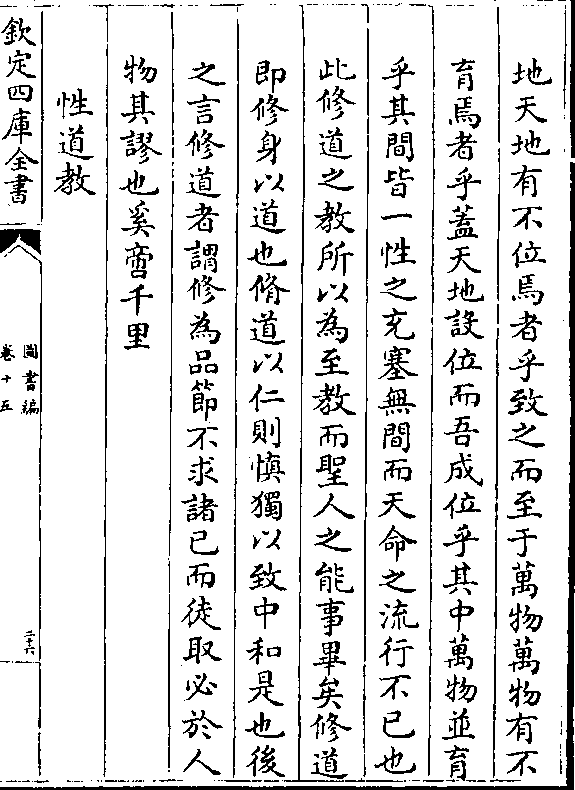 地天地有不位焉者乎致之而至于萬物萬物有不
育焉者乎蓋天地設位而吾成位乎其中萬物並育
乎其間皆一性之充塞無間而天命之流行不已也
此修道之教所以為至教而聖人之能事畢矣修道
即修身以道也脩道以仁則慎獨以致中和是也後
之言修道者謂修為品節不求諸已而徒取必於人
物其謬也奚啻千里
性道教
欽定四庫全書
圖書編
卷十五
三六